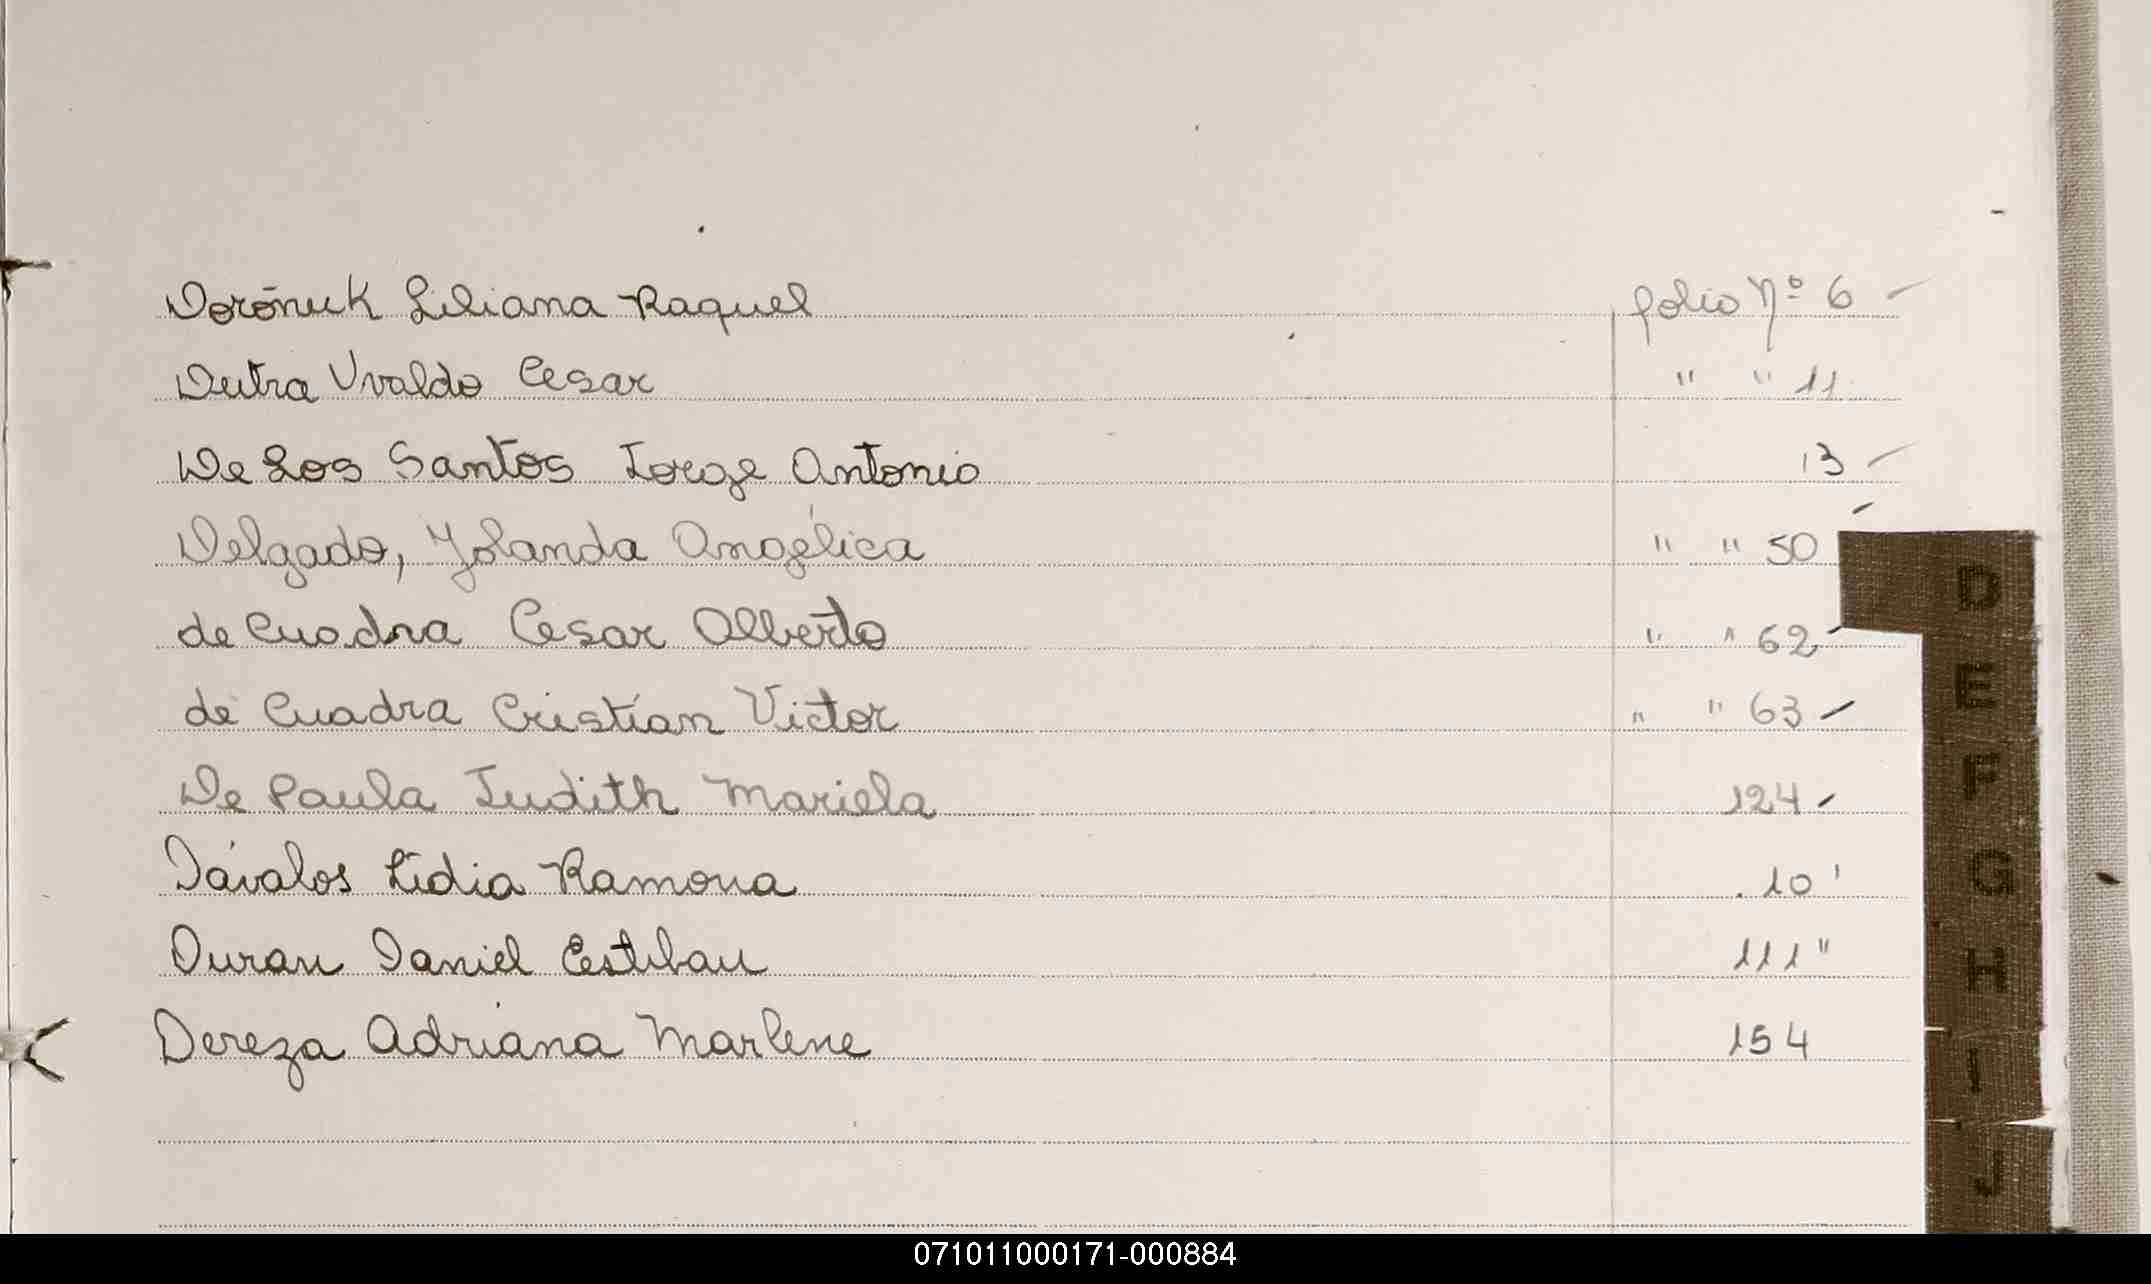 Doroñuk Liliana Raquel folio Nº 6
Dutra Uvaldo Cesar " " 11
De Los Santos Jorge Antonio 13
Delgado, Yolanda Angélica " " 50
de Cuadra Cesar Alberto " " 62
de Cuadra Cristian Victor " " 63
De Paula Judith Mariela 124
Dávalos Lidia Ramona 10 '
Duran Daniel Esteban 111 "
Dereza Adriana Marlene 154
D
E
F
G
H
I
J
071011000171-000884